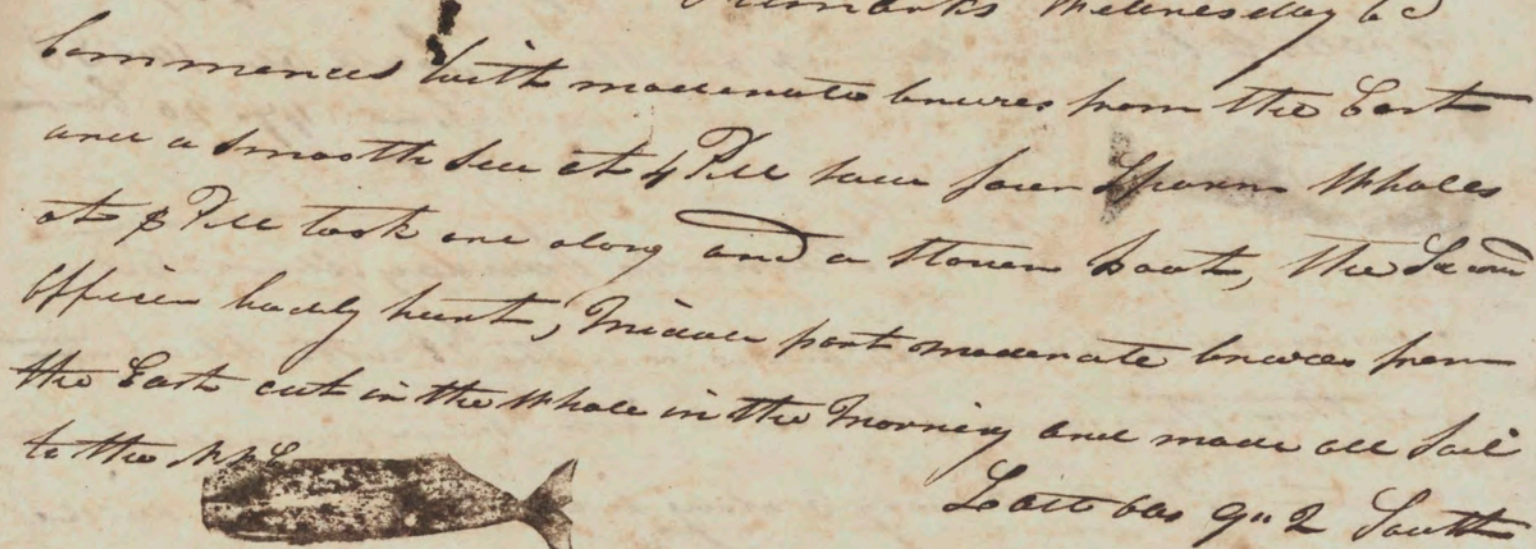 Remarks Wednesday 6
Commences with moderate breezes from the East
and a smooth sea at 4 PM saw four Sperm Whales
at 8 PM took one along and a stoven boat, the Second
Officer badly hurt, Middle part moderate breezes from
the East cut in the Whale in the Morning and made all sail
to the NNE
Latt by obs 9" 2 South